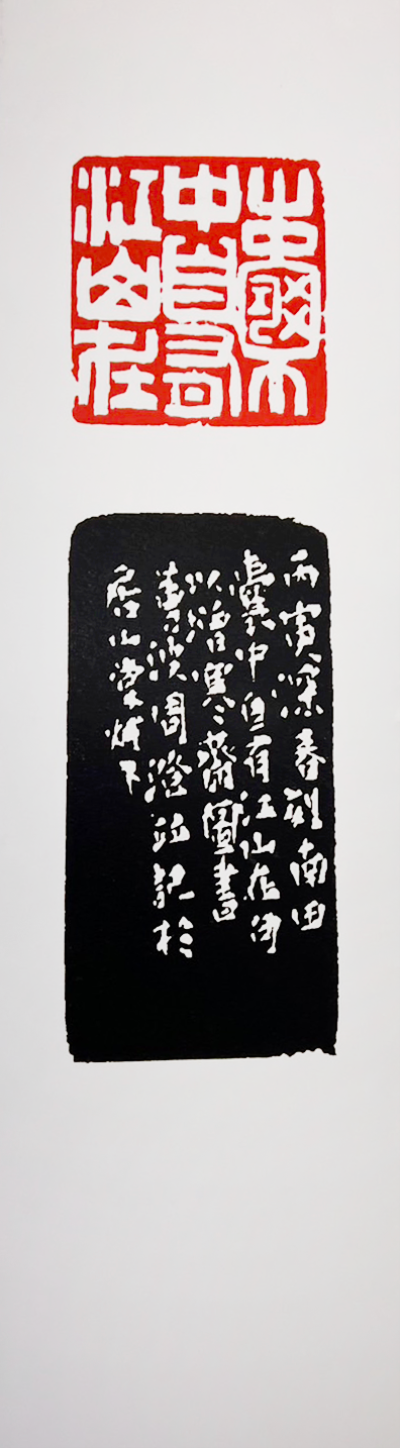 囊
中自有
江山在
丙寅深春刻南田
囊中自有江山在句
以 齋圖書
周澄 記於
居山堂燈下